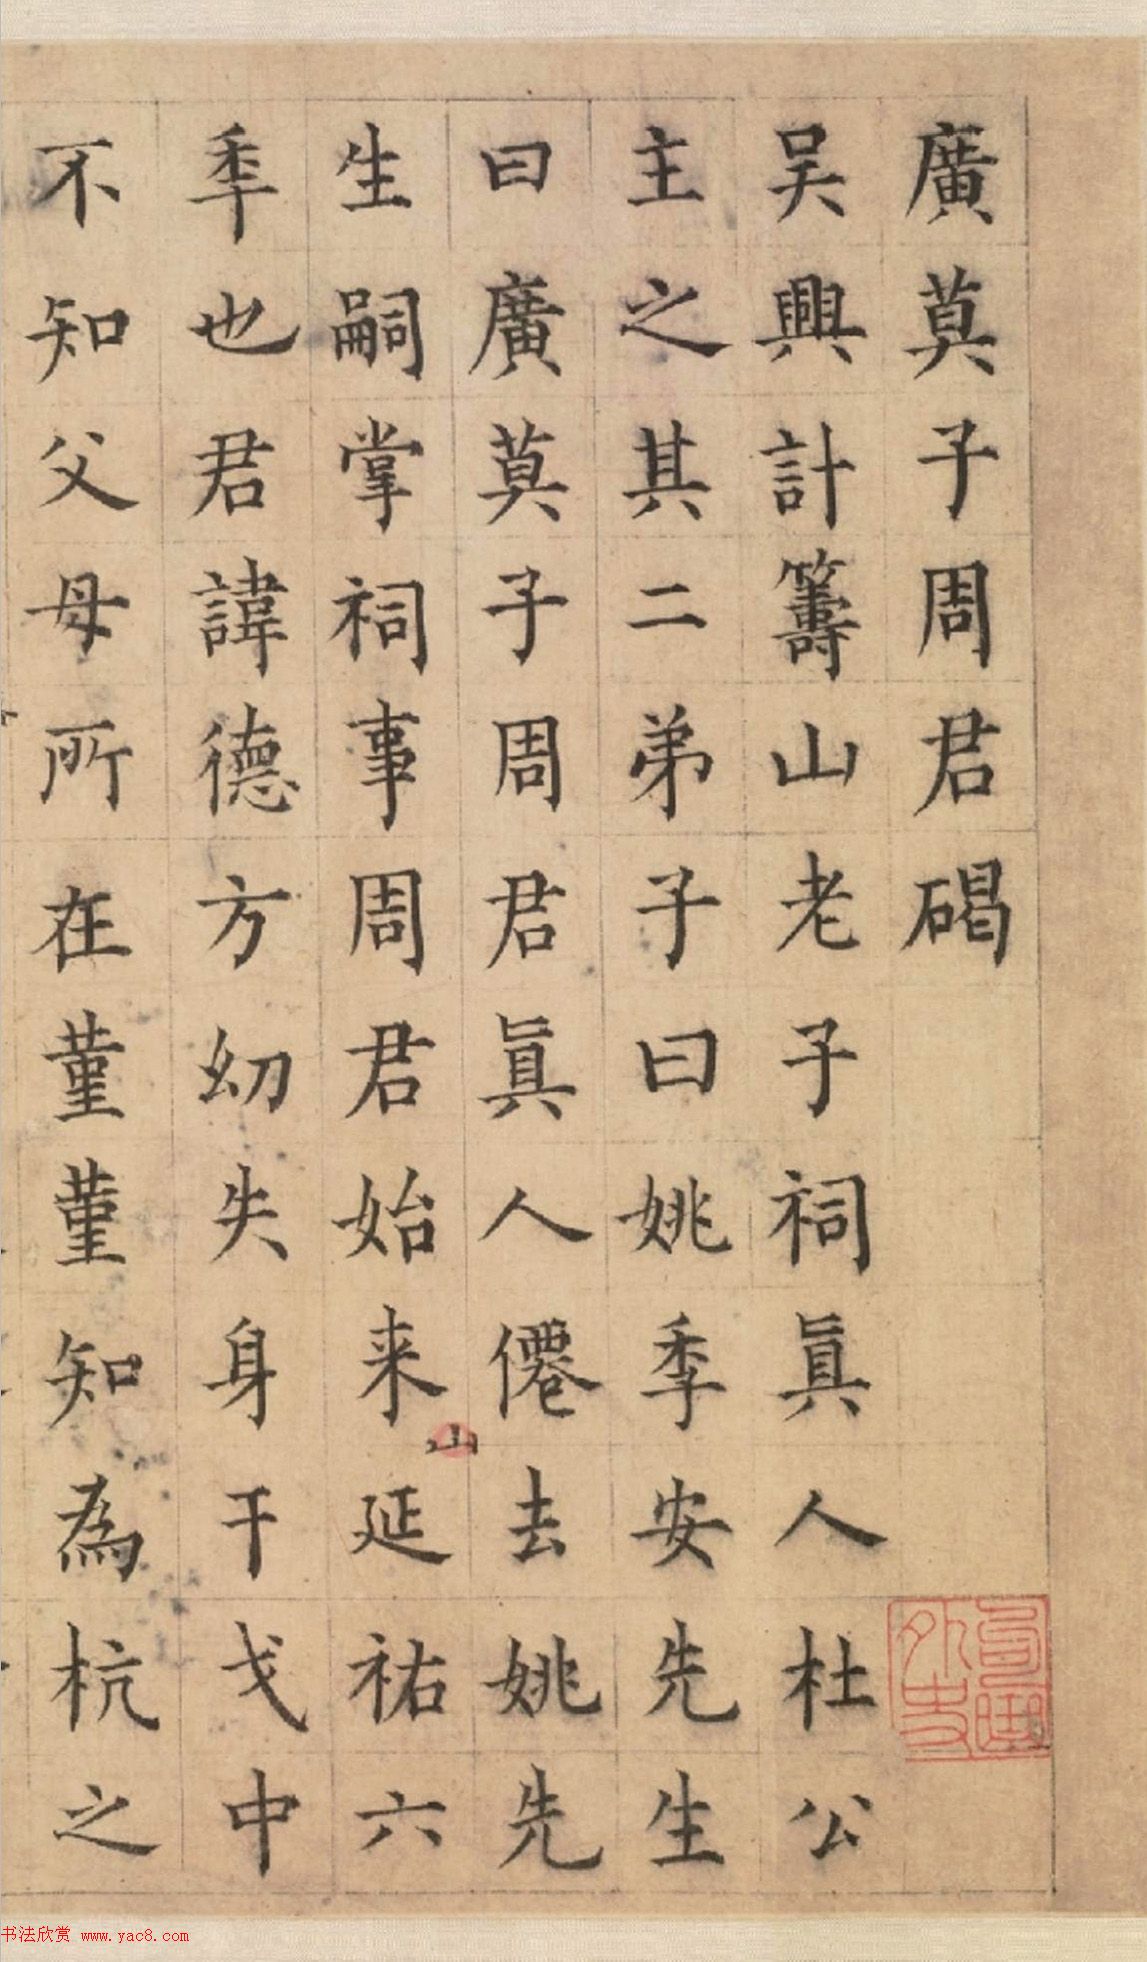 廣莫子周君碣
吳興計籌山老子祠眞人杜公
主之其二弟子曰姚季安先生
曰廣莫子周君眞人僊去姚先
生嗣掌祠事周君始来山延祐六
秊也君諱德方幼失身干戈中
不知父母所在菫菫知為杭之
书法欣赏 www.yac8.com